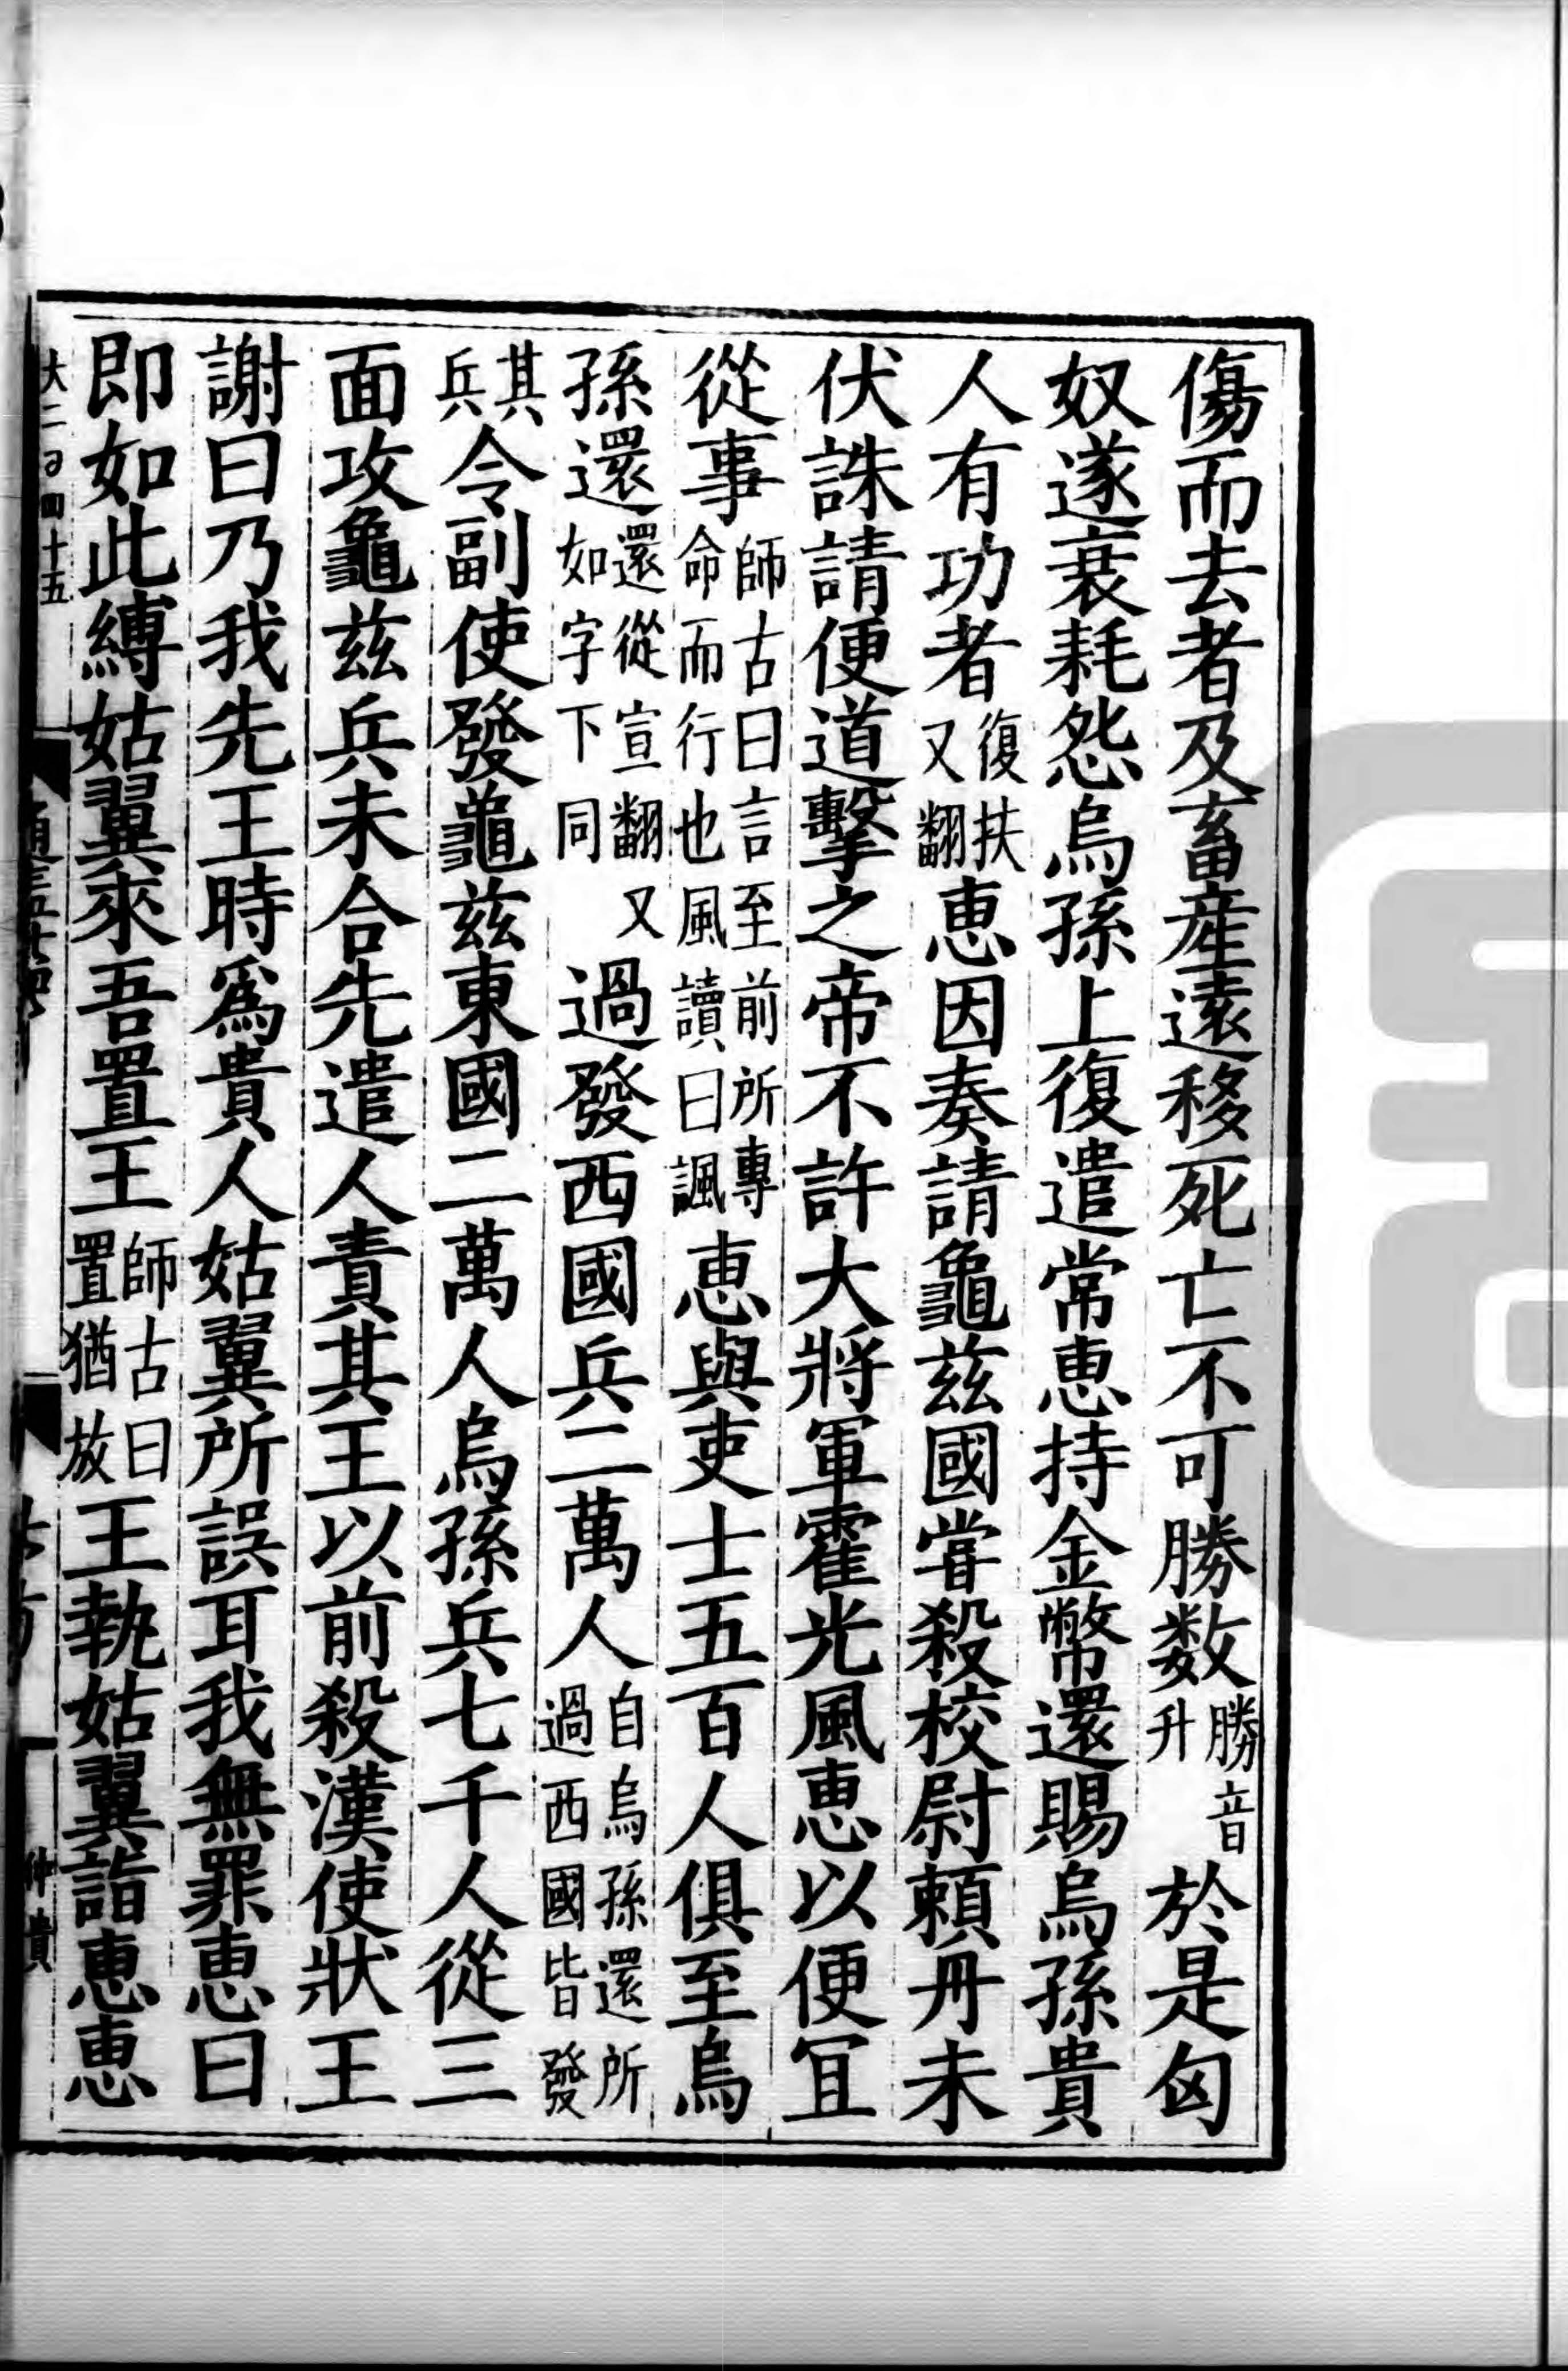 傷而去者及畜産逺移死亡不可勝数勝音升於是匈
奴遂衰耗怨烏孫上復遣常恵持金幣還賜烏孫貴
人有功者復扶又翻恵因奏請龜兹國甞殺校尉頼丹未
伏誅請便道擊之帝不許大將軍霍光風恵以便冝
從事師古曰言至前所專命而行也風讀曰諷恵與吏士五百人俱至烏
孫還還從宣翻又如字下同過發西國兵二萬人自烏孫還所過西國皆發
其兵令副使發龜兹東國二萬人烏孫兵七千人從三
面攻龜兹兵未合先遣人責其王以前殺漢使狀王
謝曰乃我先王時爲貴人姑翼所誤耳我無罪恵曰
即如此縛姑翼來吾置王師古曰置猶放王執姑翼詣恵恵
大二百四十五
仲貴